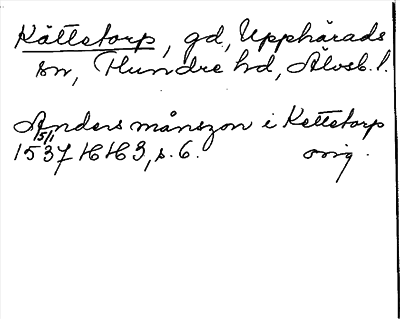 Kättstorp, gd, Upphärads
sn, Flundre hd, Älvsb. l.
Anders månszon i Kettstorp
15/11 1537 HH 3, s. 6. orig.